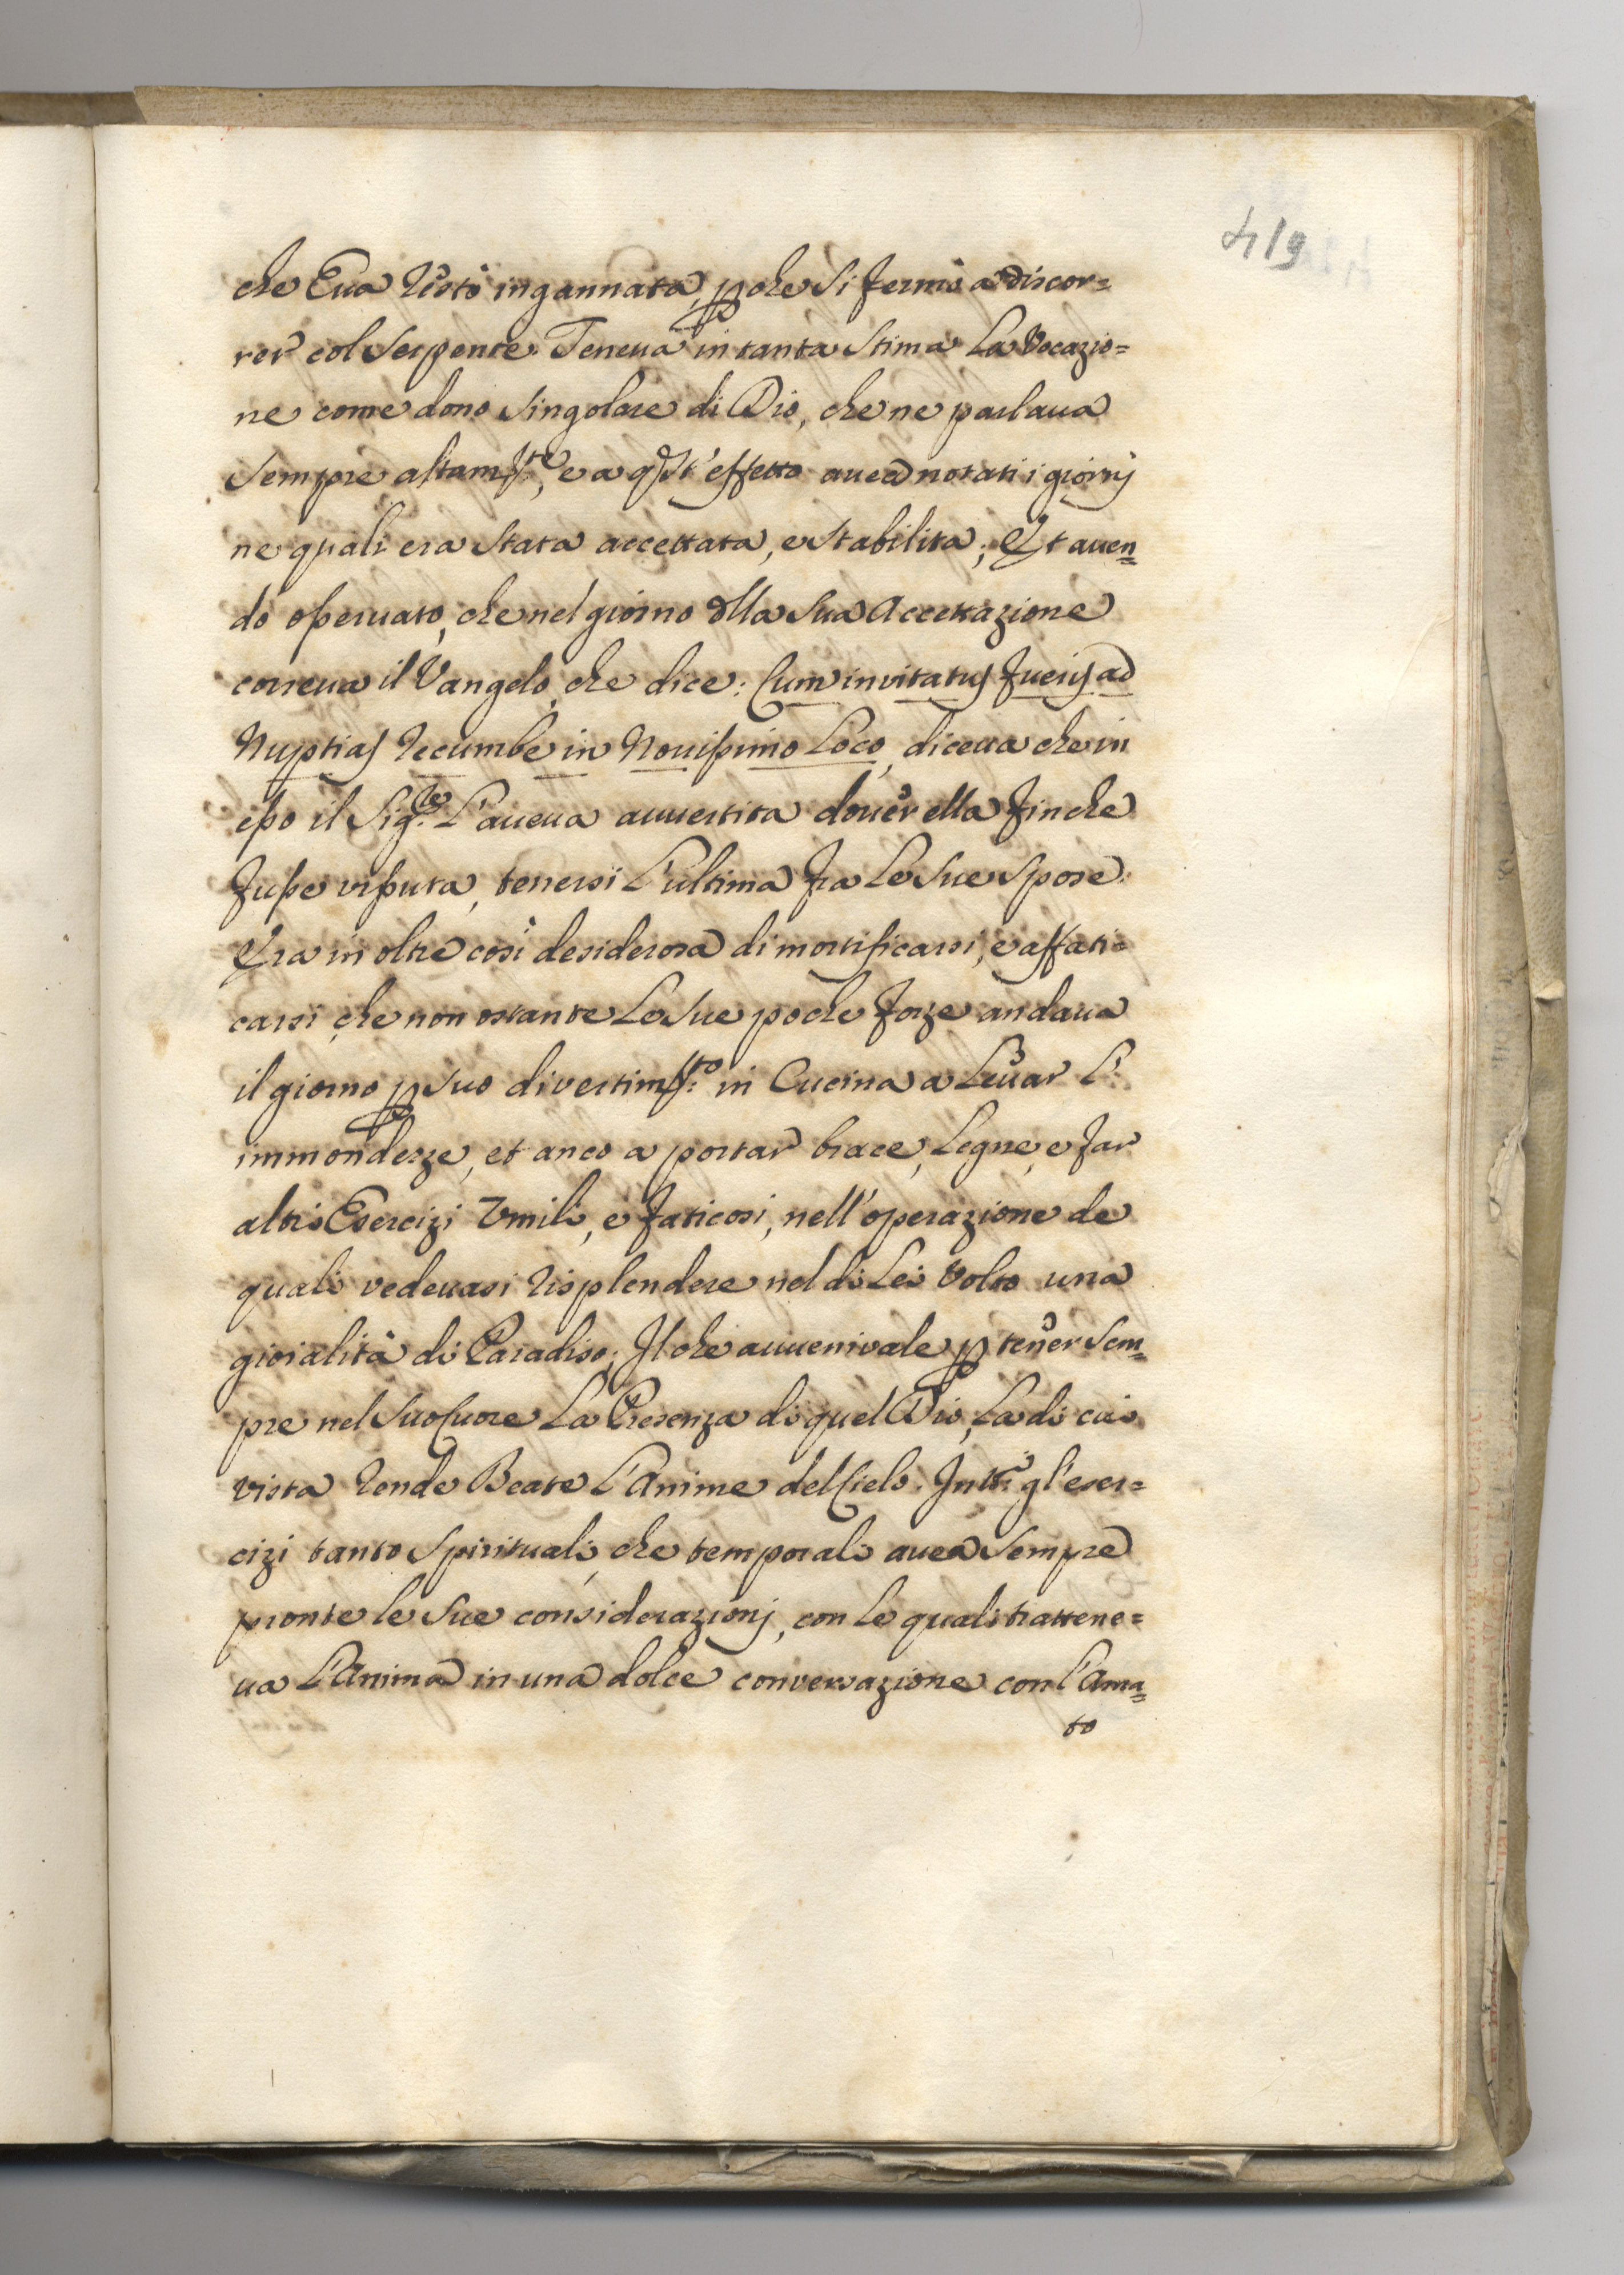 419
che Eua restò ingannata, pche si fermò a discor=
rer col Serpente. Teneua in tanta stima la Vocazio=
ne come dono singolare di Dio, che ne parlaua
sempre altamte, e a qst'effetto auea notati i giornj
ne quali era stata accettata, e stabilita; Et auen=
do osseruato, che nel giorno dlla sua Accettazione
correua il Vangelo, che dice: Cum invitatus fueris ad
Nuptias recumbe in Nouissimo Loco, diceua che in
esso il Sigre L'aueua auuertita douer ella finche
fusse vissuta, tenersi L'ultima fra Le sue Spose.
Era in oltre così desiderosa di mortificarsi, e affati=
carsi, che non ostante Le sue poche forze andaua
il giorno p suo divertimto in Cucina a Leuar L'
immondezze, et anco a portar brace, Legne, e far
altri Esercizi Vmili, e faticosi, nell'operazione de
quali vedeuasi risplendere nel di Lei Volto una
giouialità di Paradiso; Il che auuenivale p tener sem=
pre nel suo Cuore La Presenza di quel Dio, La di cui
vista rende Beate L'Anime del Cielo. In tti gl'eser=
cizi tanto Spirituali, che temporali auea sempre
pronte le sue considerazionj, con le quali trattene=
ua L'Anima in una dolce conversazione con l'Ama=
to